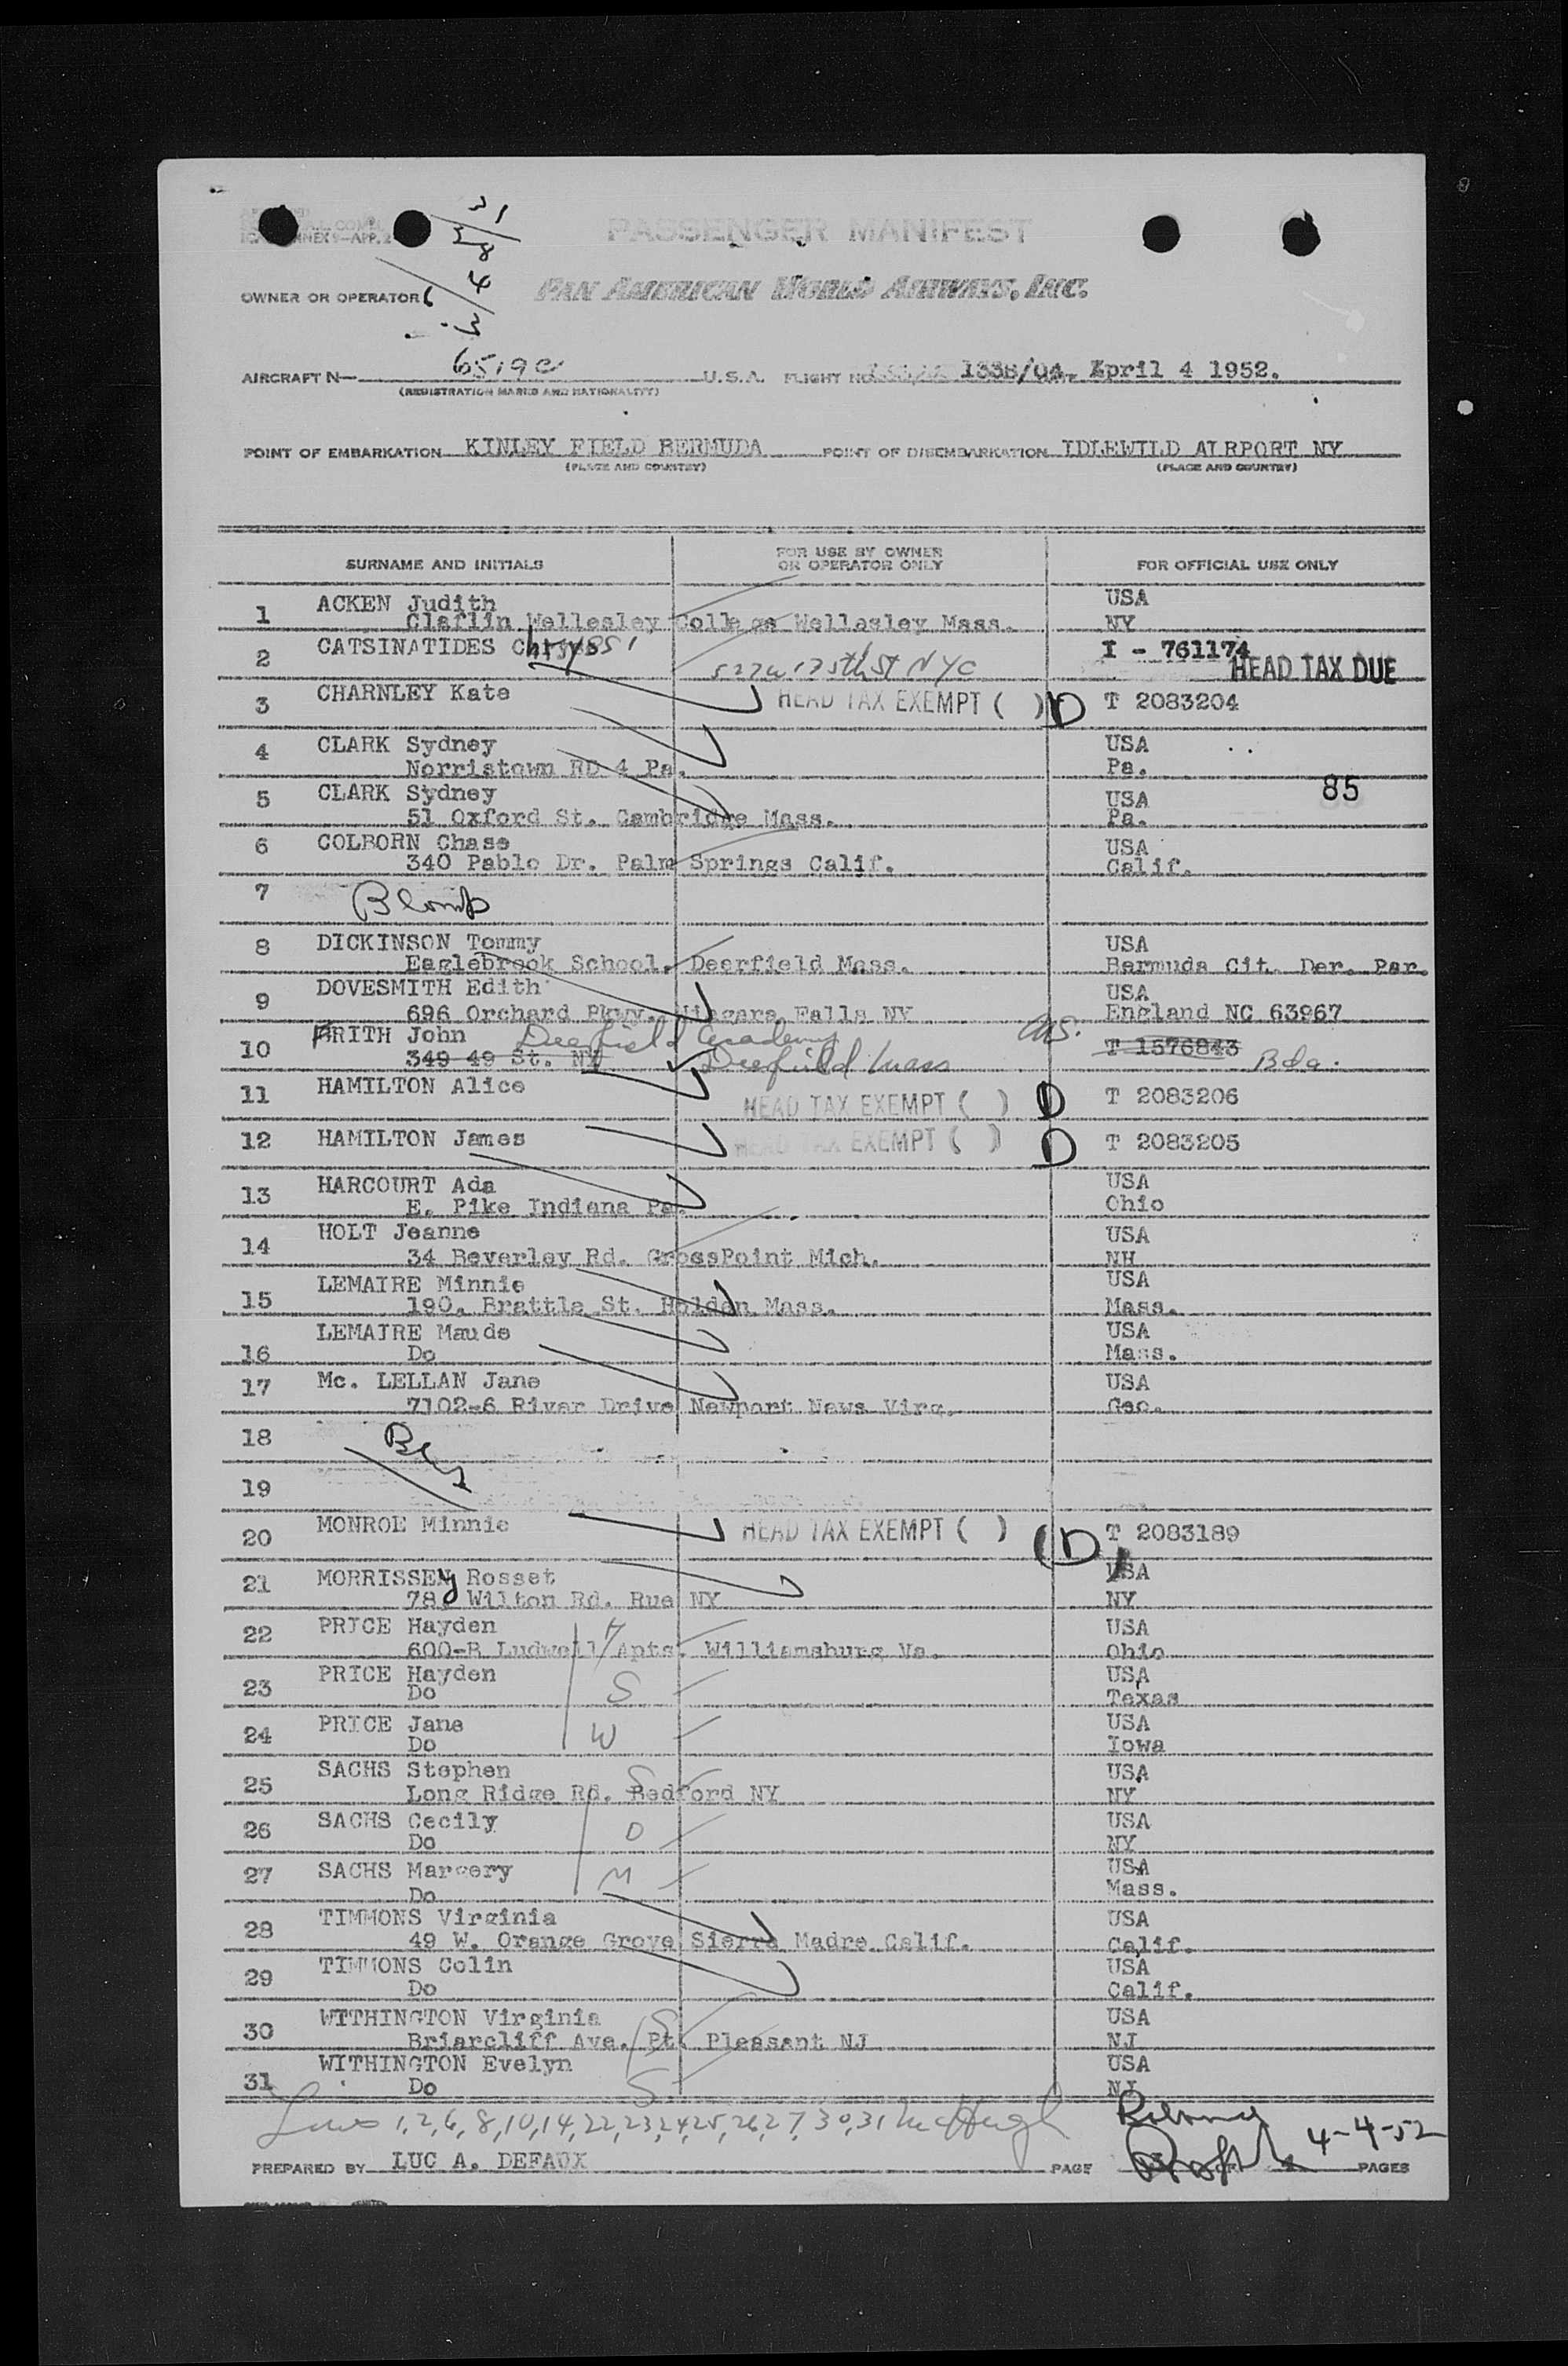 ICAO ANNEX 9-APP. 2
31
3
28
4
3
PASSENGER MANIFEST
OWNER OR OPERATOR PAN AMERICAN WORLD AIRWAYS, INC.
AIRCRAFT N— 6519C U.S.A. FLIGHT NO. 133B/04 April 4 1952.
(REGISTRATION MARKS AND NATIONALITY)
POINT OF EMBARKATION KINLEY FIELD BERMUDA POINT OF DISEMBARKATION IDLEWILD AIRPORT NY
(PLACE AND COUNTRY) (PLACE AND COUNTRY)
SURNAME AND INITIALS FOR USE BY OWNER OR OPERATOR ONLY FOR OFFICIAL USE ONLY
1 ACKEN Judith USA
Claflin Wellesley College Wellesley Mass. NY
2 CATSINATIDES Chryss I - 761174
522 W 175th St NYC HEAD TAX DUE
3 CHARNLEY Kate HEAD TAX EXEMPT ( ) D T 2083204
4 CLARK Sydney USA
Norristown RD 4 Pa. Pa.
85
5 CLARK Sydney USA
51 Oxford St. Cambridge Mass. Pa.
6 COLBORN Chase USA
340 Pablo Dr. Palm Springs Calif. Calif.
7 Blank
8 DICKINSON Tommy USA
Eaglebrook School. Deerfield Mass. Bermuda Cit. Der. Par.
9 DOVESMITH Edith USA
696 Orchard Pkwy. Niagara Falls NY England NC 63967
10 FRITH John Deerfield Academy T 1576843
349 49 St. NY Deerfield Mass Bda.
11 HAMILTON Alice HEAD TAX EXEMPT ( ) D T 2083206
12 HAMILTON James HEAD TAX EXEMPT ( ) D T 2083205
13 HARCOURT Ada USA
E. Pike Indiana Pa. Ohio
14 HOLT Jeanne USA
34 Beverley Rd. GrossPoint Mich. NH
15 LEMAIRE Minnie USA
190. Brattle St. Holden Mass. Mass.
16 LEMAIRE Maude USA
Do Mass.
17 Mc. LELLAN Jane USA
7102-6 River Drive Newport News Virg. Geo.
18
19
20 MONROE Minnie HEAD TAX EXEMPT ( ) (D) T 2083189
21 MORRISSEY Rosset USA
78, Wilton Rd. Rue NY NY
22 PRICE Hayden USA
600-B Ludwell Apts. Williamsburg Va. Ohio
23 PRICE Hayden S USA
Do Texas
24 PRICE Jane W USA
Do Iowa
25 SACHS Stephen S USA
Long Ridge Rd. Bedford NY NY
26 SACHS Cecily D USA
Do NY
27 SACHS Margery M USA
Do Mass.
28 TIMMONS Virginia USA
49 W. Orange Grove Sierra Madre Calif. Calif.
29 TIMMONS Colin USA
Do Calif.
30 WITHINGTON Virginia S USA
Briarcliff Ave. Pt. Pleasant NJ NJ
31 WITHINGTON Evelyn S USA
Do NJ
Lines 1, 2, 6, 8, 10, 14, 22, 23, 24, 25, 26, 27, 30, 31 McHugh
4-4-52
PREPARED BY LUC A. DEFAUX PAGE OF PAGES